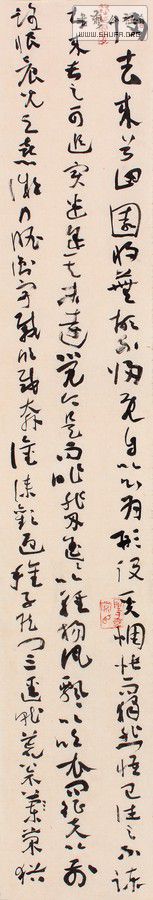 歸去来兮田園將蕪胡不歸既自以心為形役奚惆悵而獨悲悟已往之不諫
知来者之可追實迷途其未遠覺今是而昨非舟遥遥以輕颺風飄飄以吹衣問征夫以前
路恨晨光之熹微乃瞻衡宇載欣載奔僮僕歡迎稚子候門三逕就荒松菊猶
WWW.SHUFA.ORG